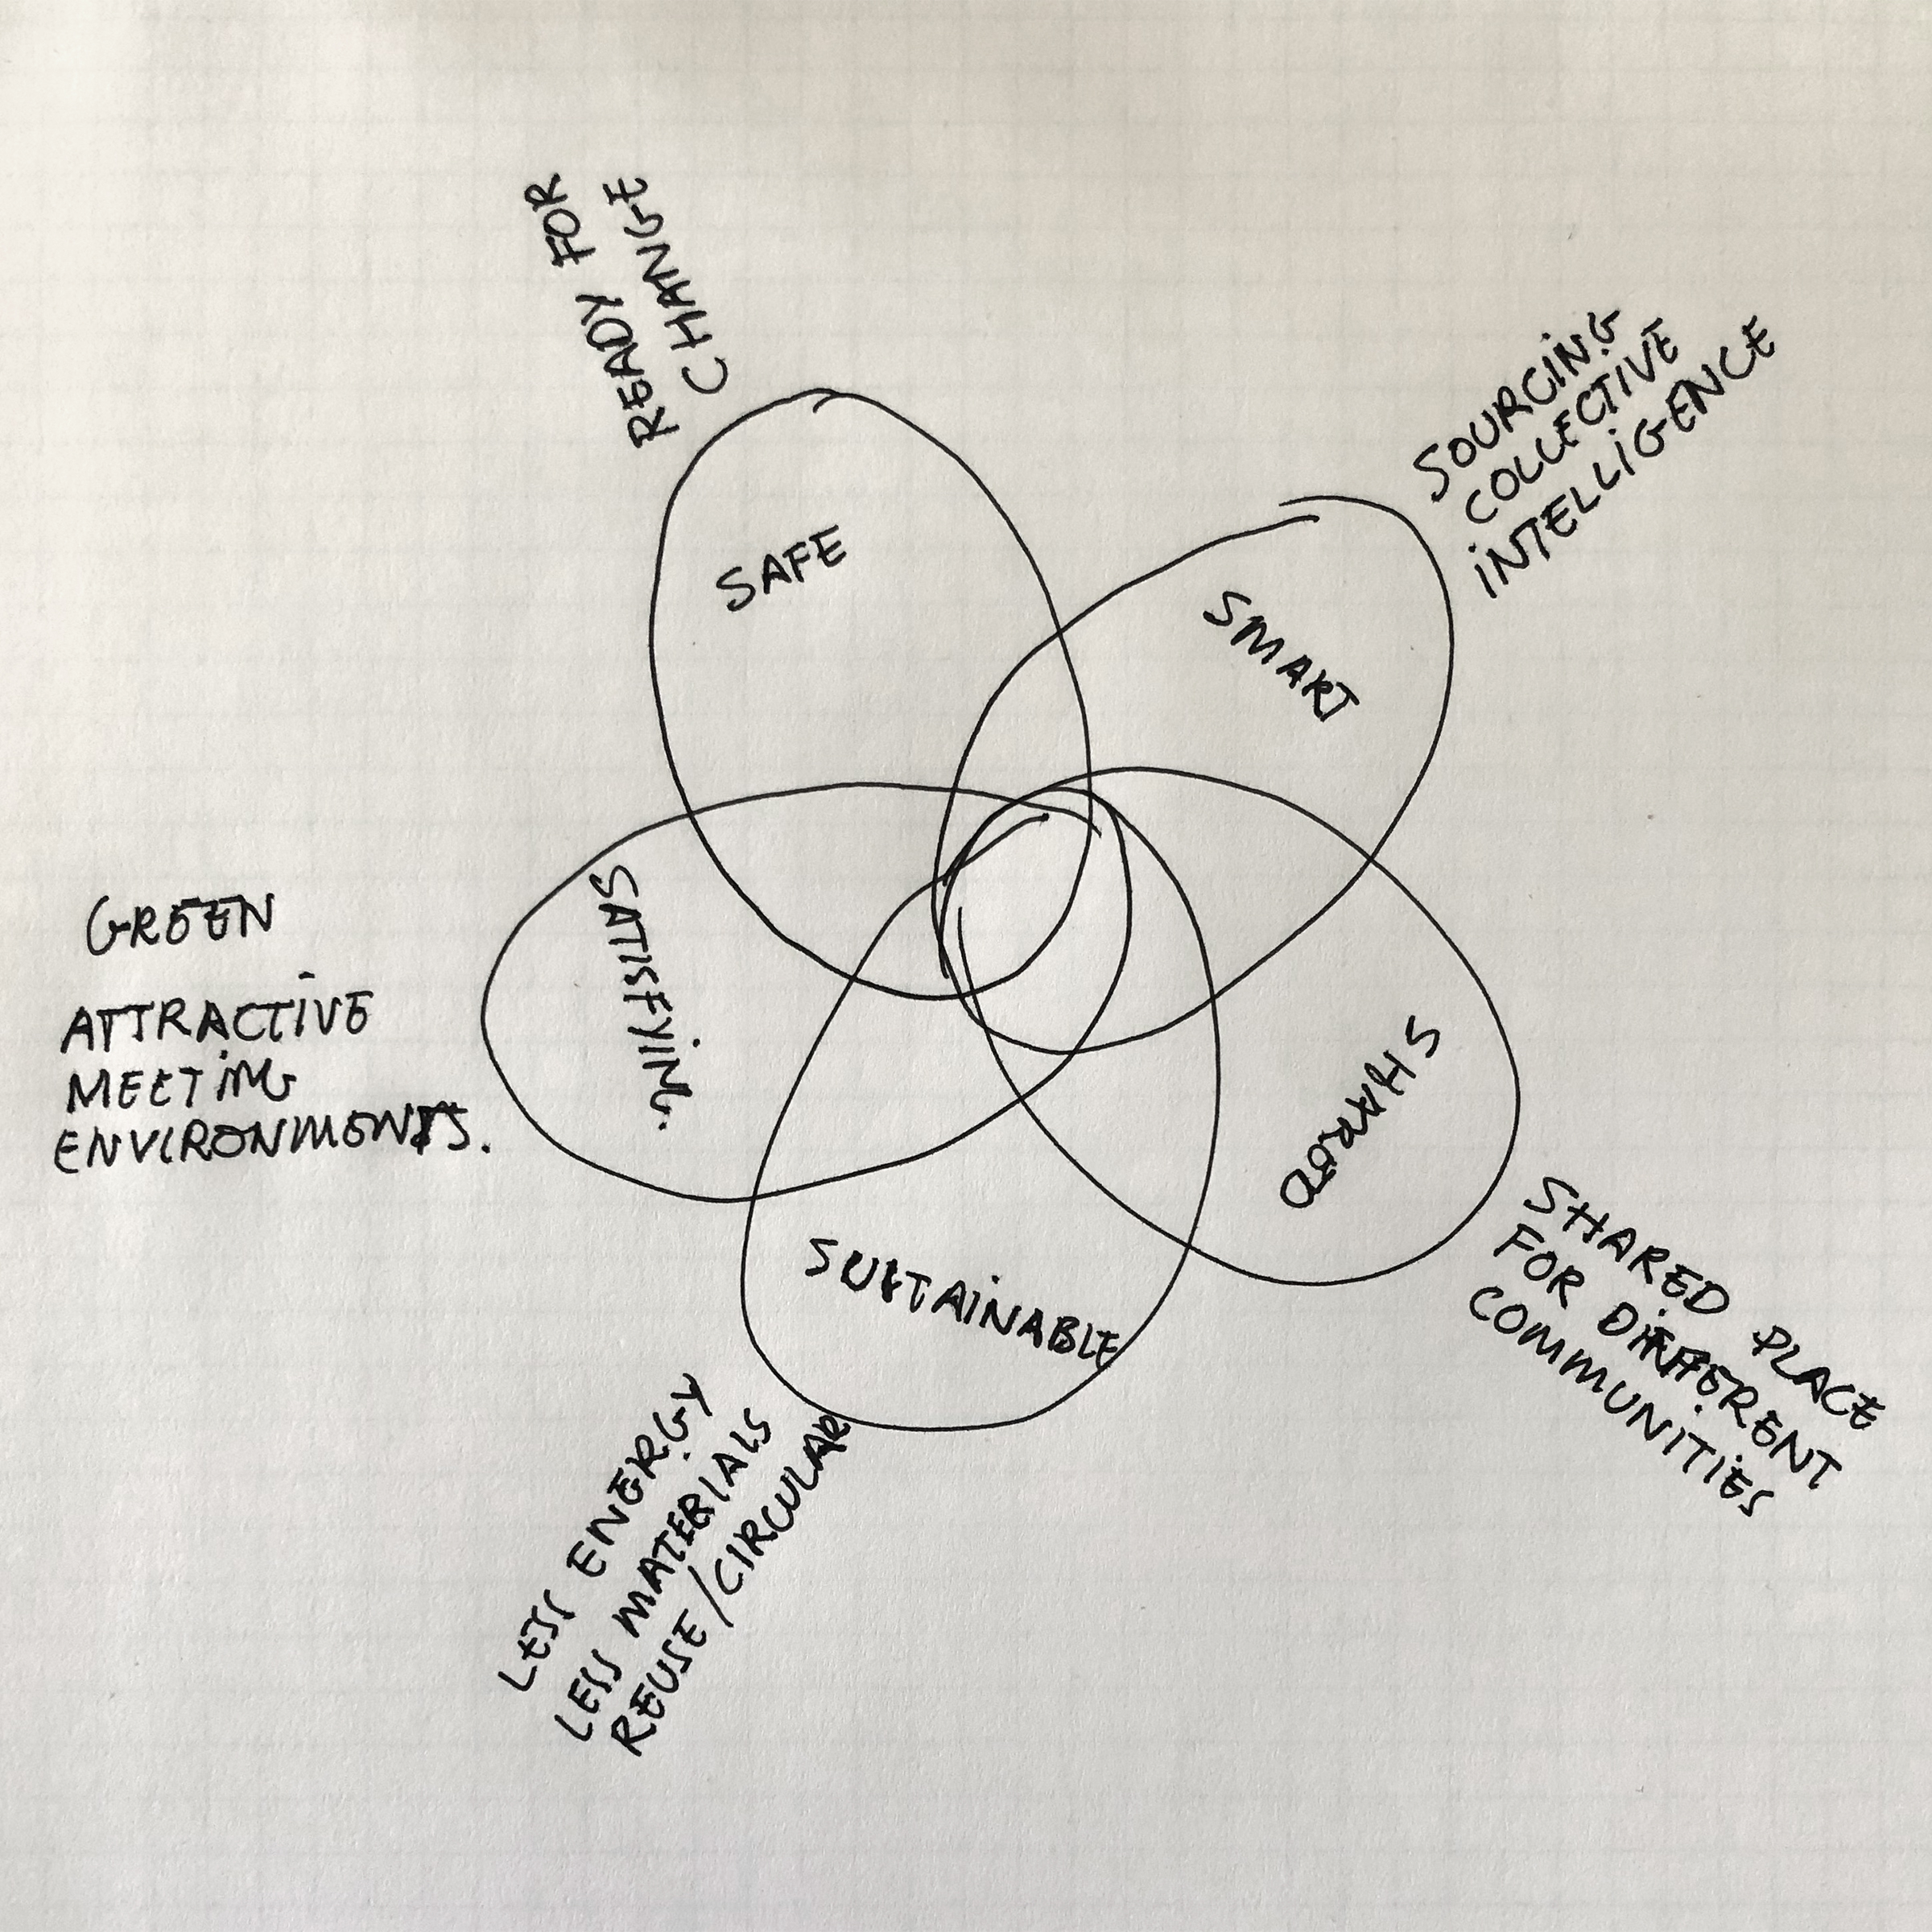 READY FOR
CHANGE
SAFE
SOURCING
COLLECTIVE
INTELLIGENCE
SMART
GREEN
ATTRACTIVE
MEETING
ENVIRONMENTS.
SATISFYING
SHARED
SHARED PLACE
FOR DIFFERENT
COMMUNITIES
SUSTAINABLE
LESS ENERGY
LESS MATERIALS
REUSE/CIRCULAR